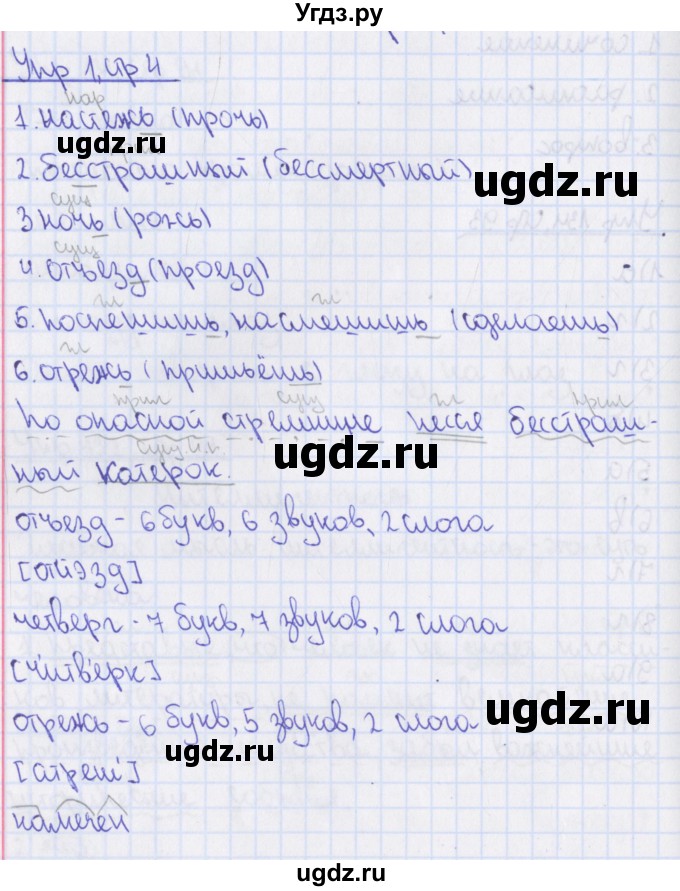 Угдз.ру
Упр 1, стр 4
нар
1. настежь (прочь)
2. бесстрашный (бессмертный)
сущ
3 ночь (рожь)
сущ
4. отъезд (проезд)
гл гл
5. поспешишь, насмешишь (сделаешь)
гл
6. отрежь (пришьёшь)
прил сущ гл прил
По опасной стремнине несся бесстраш-
сущ И.п.
ный катерок.
отъезд - 6 букв, 6 звуков, 2 слога
[атй'эзд]
четверг - 7 букв, 7 звуков, 2 слога
[ч'итв'ерк]
отрежь - 6 букв, 5 звуков, 2 слога
[атреш']
намечен
ugdz.ru
ugdz.ru
ugdz.ru
ugdz.ru
ugdz.ru
ugdz.ru
ugdz.ru
ugdz.ru
ugdz.ru
ugdz.ru